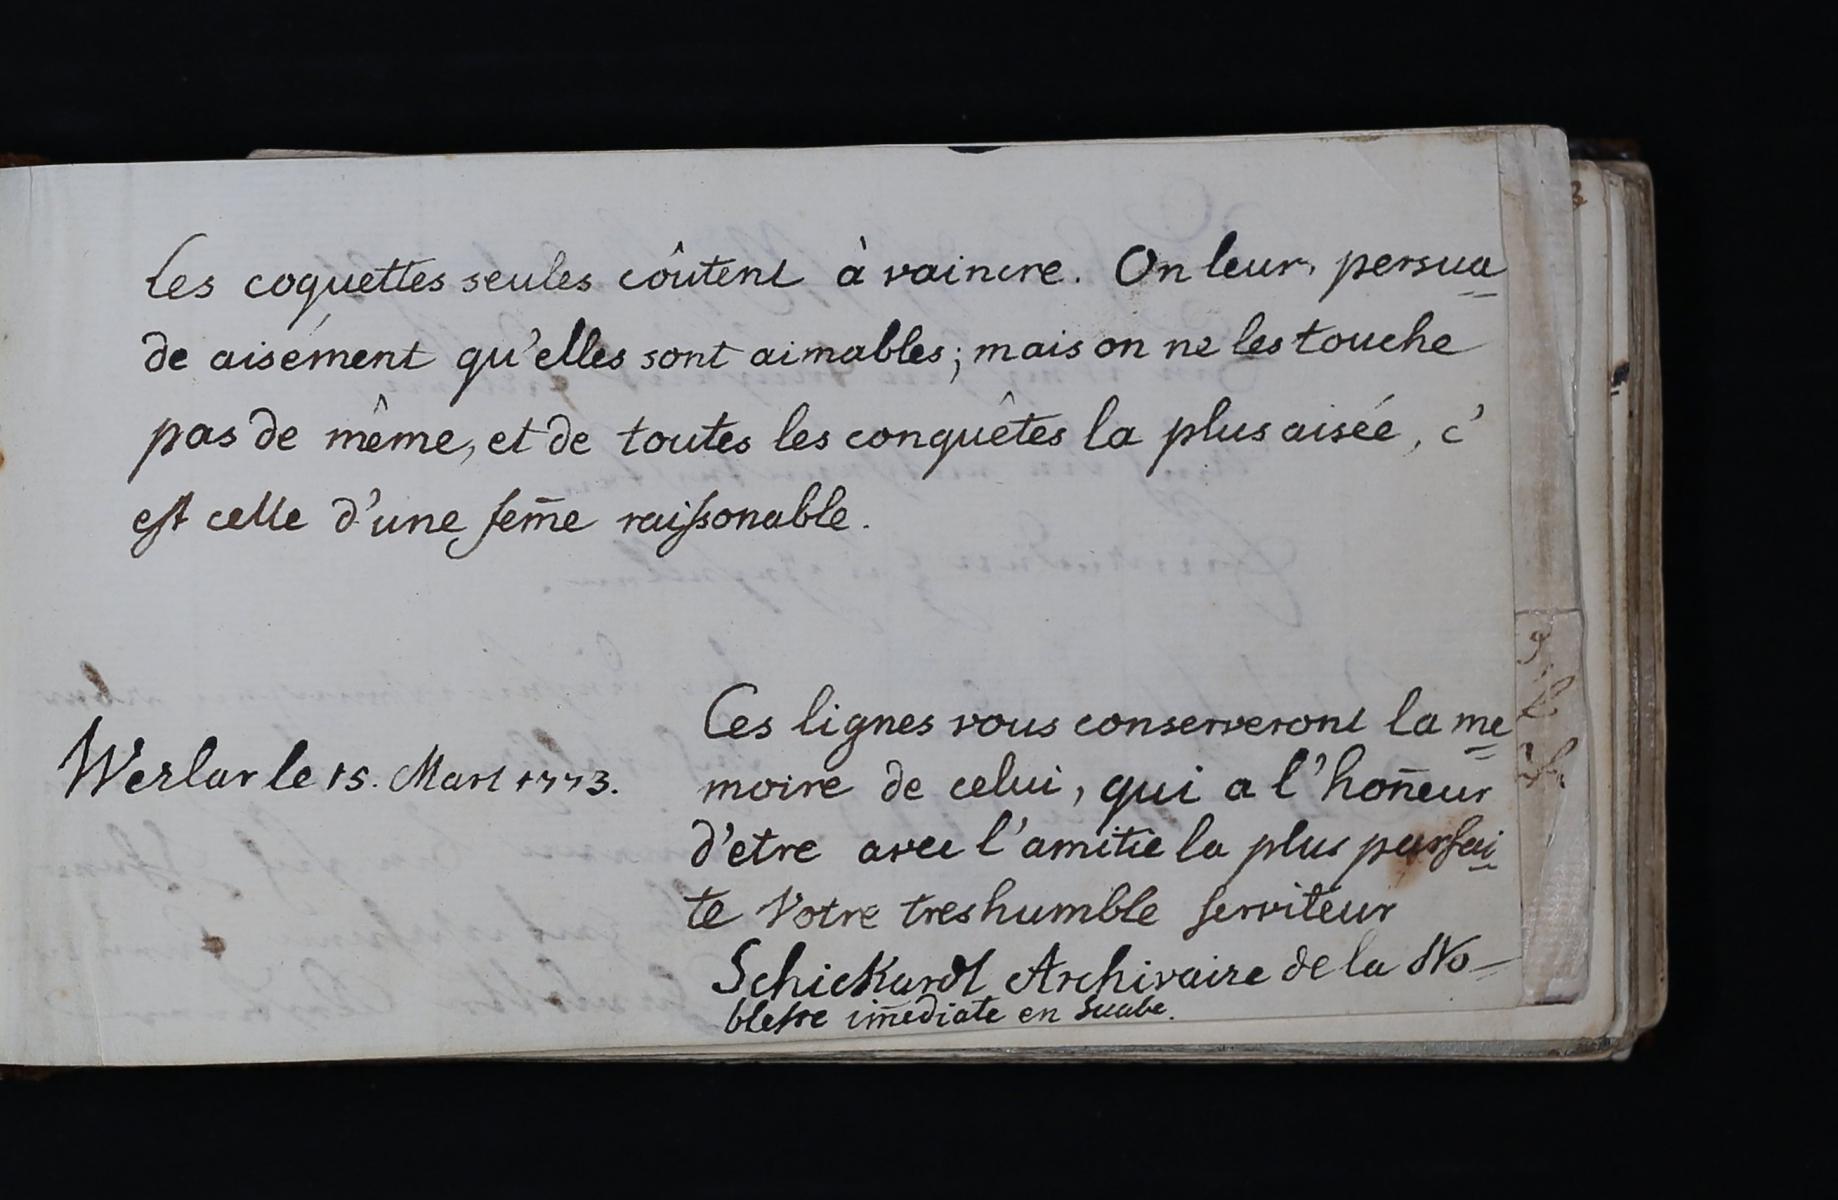 Les coquettes seules côutent à vaincre. On leur persua=
de aisément qu'elles sont aimables; mais on ne les touche
pas de même, et de toutes les conquêtes la plus aisée, c'
est celle d'une fem̄e raiſsonable.
Wezlar le 15. Mart 1773.
Ces lignes vous conserveront la me=
moire de celui, qui a l'hon̄eur
d'etre avec l'amitie la plus parfai=
te Votre treshumble serviteur
Schickardt Archivaire de la No-
bleſse im̄ediate en Suabe.